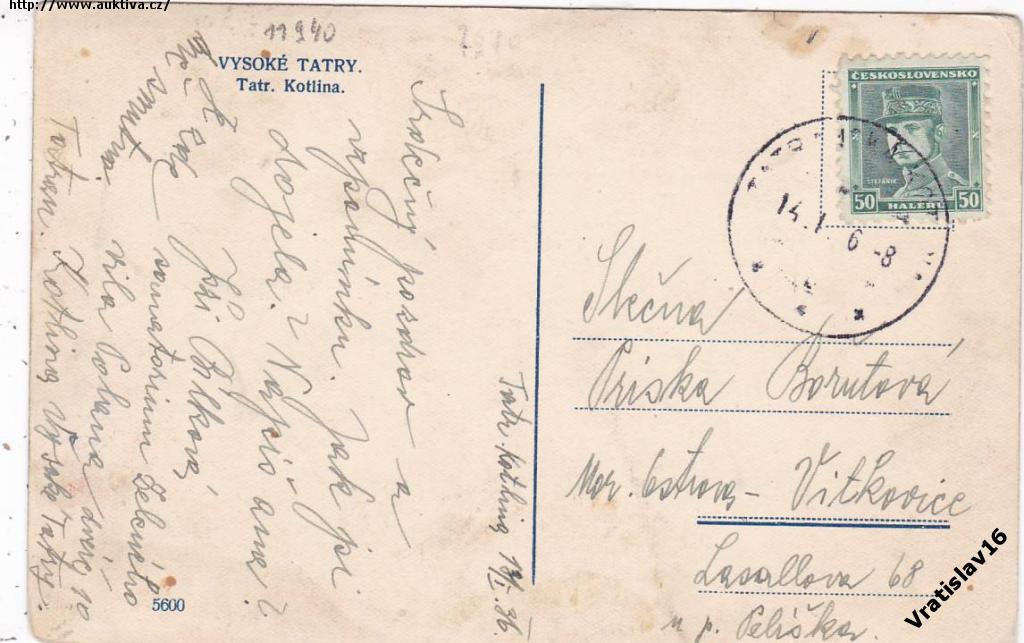 http://www.auktiva.cz/
11940
VYSOKÉ TATRY.
Tatr. Kotlina.
Srdečný pozdrav a
vzpomínku. Jak jsi
dojela? Napiš ana?
Jsi Bílková,
sanatorium
vila Poľana dveře 10
Tatran. Kotlina Vysoké Tatry.
Tatr. Kotlina I. 36.
5600
ČESKOSLOVENSKO
ŠTEFÁNIK
50 HALÉŘŮ 50
14. I 6 -8
Slečna
Priska Borutová
Mor. Ostrava - Vítkovice
Lasallova 68
u p. Peliška.
Vratislav16